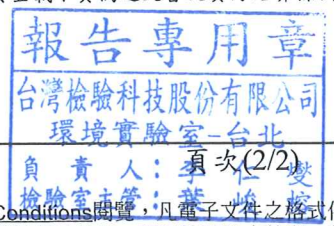 報告專用章
台灣檢驗科技股份有限公司
環境實驗室-台北
頁次(2/2)
負責人:
檢驗室主管:
Conditions閱覽,凡電子文件之格式